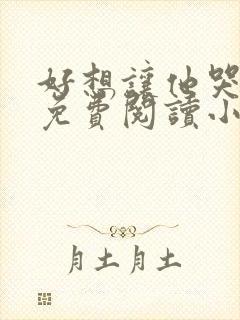 好想讓他哭
免費閱讀小
月土月土